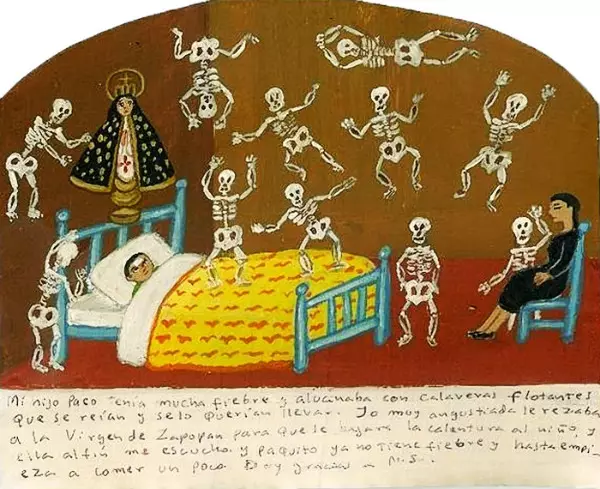 Mi hijo Paco tenía mucha fiebre y alucinaba con calaveras flotantes
que se reían y se lo querían llevar. Yo muy angustiada le rezaba
a la Virgen de Zapopan para que se bajara la calentura al niño, y
ella al fin me escucho y paquito ya no tiene fiebre y hasta empi-
eza a comer un poco Doy gracias a